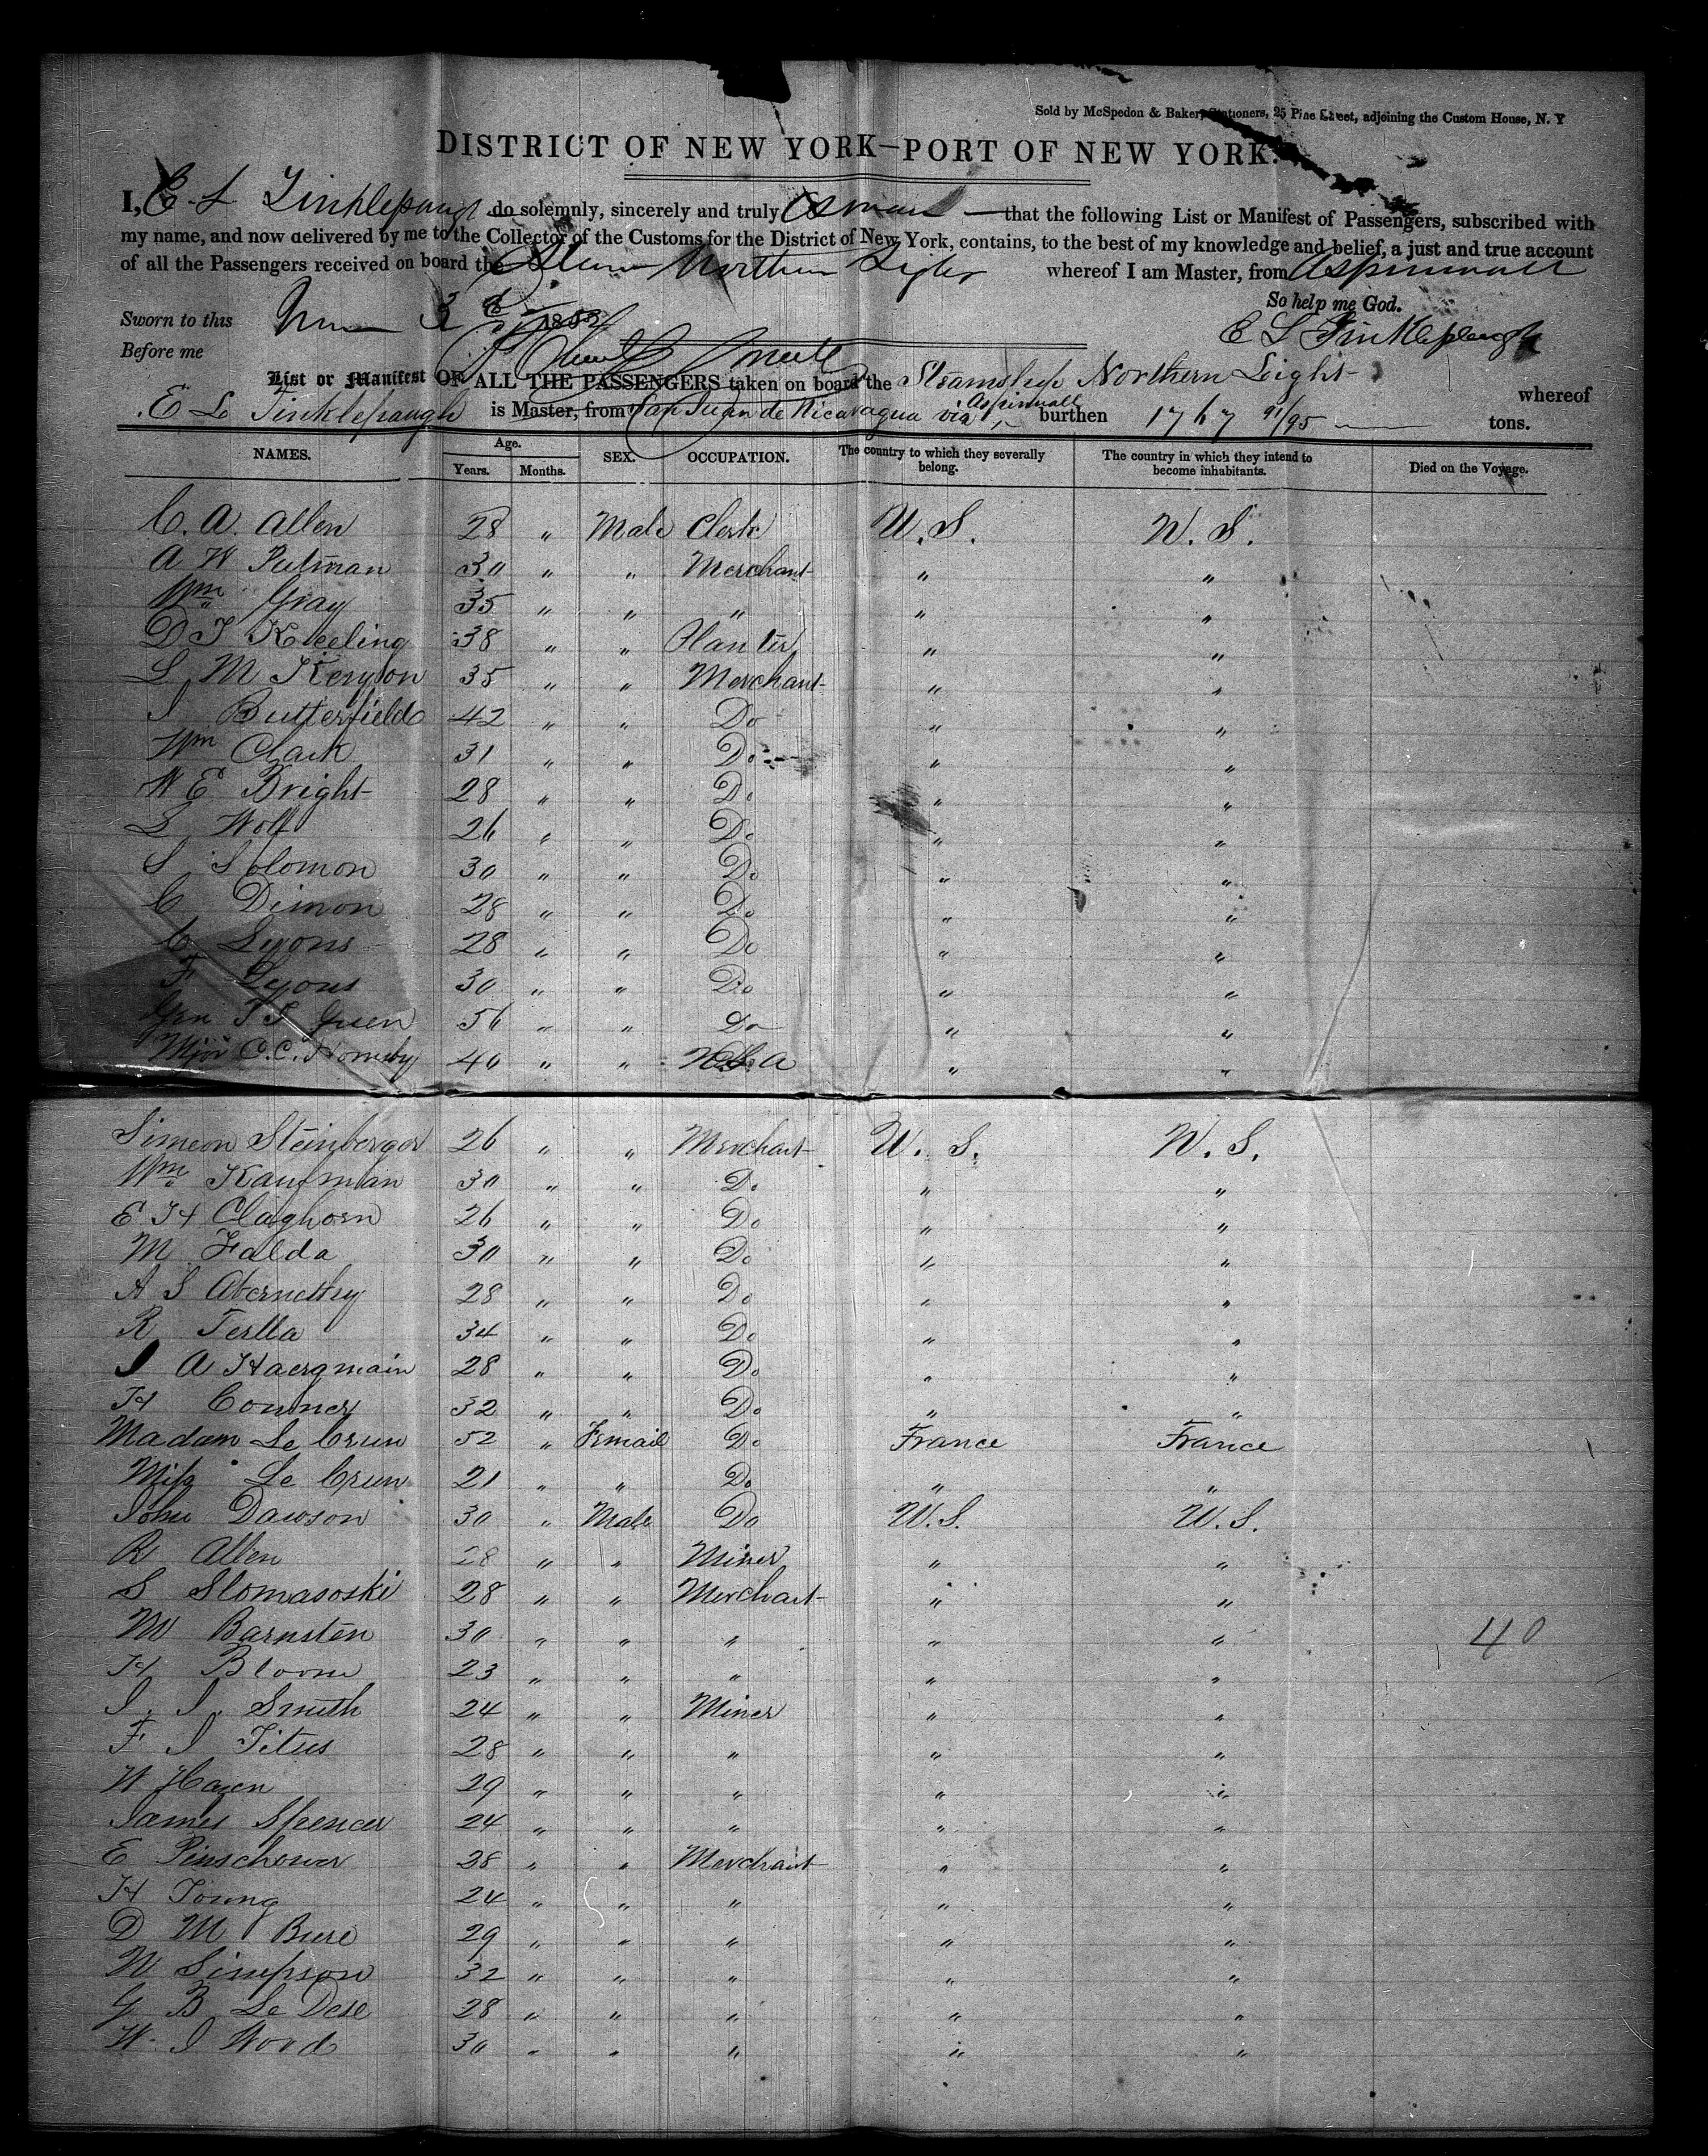 Sold by McSpedon & Baker, Stationers, 25 Pine Street, adjoining the Custom House, N. Y
DISTRICT OF NEW YORK—PORT OF NEW YORK.
I, E. L Tinklepaugh do solemnly, sincerely and truly that the following List or Manifest of Passengers, subscribed with
my name, and now delivered by me to the Collector of the Customs for the District of New York, contains, to the best of my knowledge and belief, a just and true account
of all the Passengers received on board the Northern Light whereof I am Master, from Aspinwall
So help me God.
Sworn to this 3 185
E L Tinklepaugh
Before me
List or Manifest OF ALL THE PASSENGERS taken on board the Steamship Northern Light whereof
E L Tinklepaugh is Master, from San Juan de Nicaragua via Aspinwall burthen 1767 91/95 tons.
NAMES. Age. Years. Months. SEX. OCCUPATION. The country to which they severally belong. The country in which they intend to become inhabitants. Died on the Voyage.
C. A. Allen 28 " Male Clerk U. S. U. S.
A W Putman 30 " " Merchant " "
Wm Gray 35 " " " " "
D T Keeling 38 " " Planter " "
L M Kenyon 35 " " Merchant " "
I Butterfield 42 " " Do " "
Wm Clark 31 " " Do " "
W E Bright 28 " " Do " "
S Wolf 26 " " Do " "
S Solomon 30 " " Do " "
C Dimon 28 " " Do " "
C Lyons 28 " " Do " "
F Lyons 30 " " Do " "
Gen T J Green 56 " " Do " "
Mjor C. C. Hornsby 40 " " A " "
Simeon Steinberger 26 " " Merchant U. S. U. S.
Wm Kaufman 30 " " Do " "
E H Claghorn 26 " " Do " "
M Falda 30 " " Do " "
A S Abernethy 28 " " Do " "
R Terlla 34 " " Do " "
I A Haergmain 28 " " Do " "
H Conner 32 " " Do " "
Madam Le Crun 52 " Femail Do France France
Miss Le Crun 21 " " Do " "
John Dawson 30 " Male Do U. S. U. S.
R Allen 28 " " Miner " "
S Slomasoski 28 " " Merchant " "
M Barnsten 30 " " " " " 40
H Bloom 23 " " " " "
I. I. Smith 24 " " Miner " "
F I Titus 28 " " " " "
W Hazen 29 " " " " "
James Spencer 24 " " " " "
E Pinschower 38 " " Merchant " "
H Young 24 " " " " "
D M Bure 29 " " " " "
W Simpson 32 " " " " "
G B Le Dese 28 " " " " "
W. I Wood 30 " " " " "